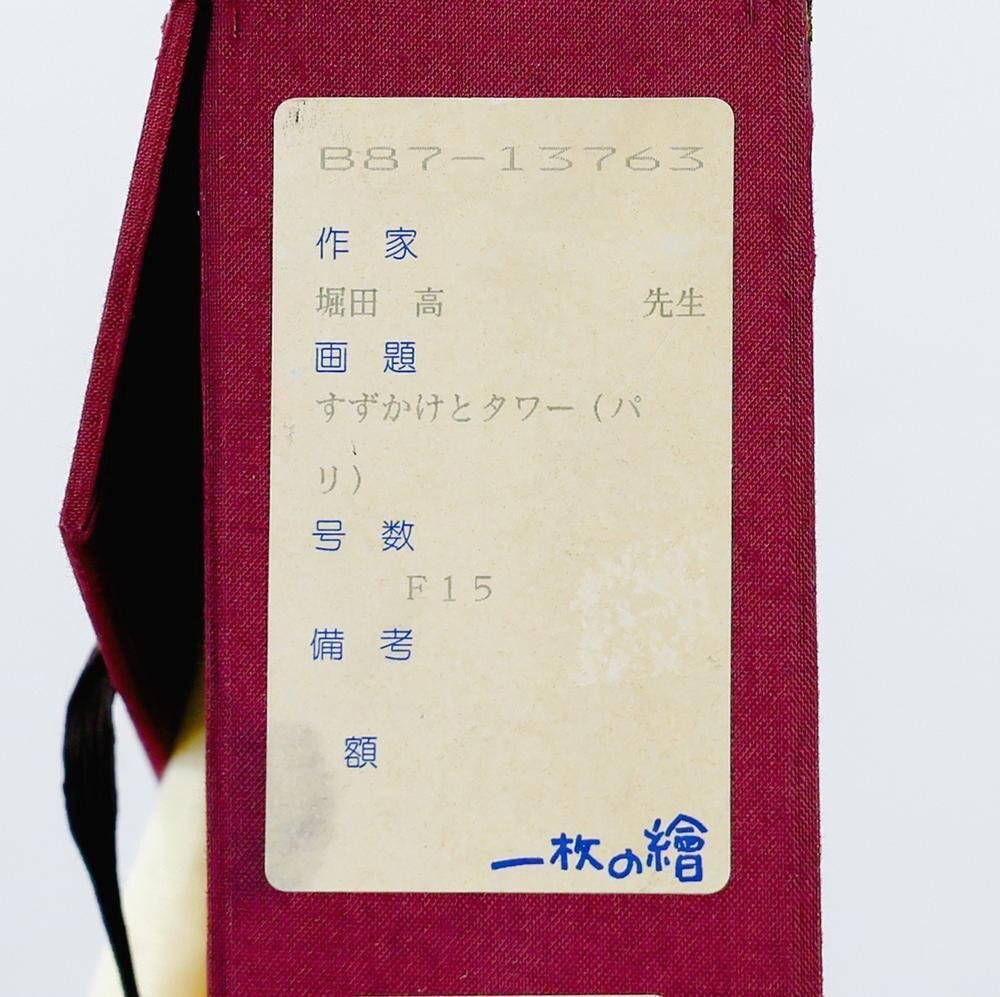 B87-13763
作 家
堀田 高 先生
画 題
すずかけとタワー（パ
リ）
号 数
F15
備 考
額
一枚の繪